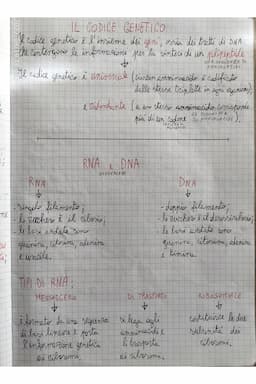 IL CODICE GENETICO
Il codice genetico è l'insieme dei geni, ossia dei tratti di DNA
che contengono le informazioni per la sintesi di un polipeptide
Il codice genetico è universale (ciascun amminoacido è codificato
dalle stesse triplette in ogni specie);
e ridondante (a uno stesso amminoacido corrisponde
più di un codone
RNA e DNA
RNA
DNA
- singolo filamento;
- doppio filamento;
- lo zucchero è il ribosio;
- lo zucchero è il desossiribosio;
- le basi azotate sono
- le basi azotate sono
guanina, citosina, adenina
guanina, citosina, adenina
e uracile.
e timina.
TIPI DI RNA:
MESSAGGERO
DI TRASPORTO
RIBOSOMIALE
è formato da una sequenza
si lega agli
costituisce le due
di basi lineare e porta
amminoacidi e
subunità dei
l'informazione genetica
li trasporta
ribosomi.
ai ribosomi.
ai ribosomi.